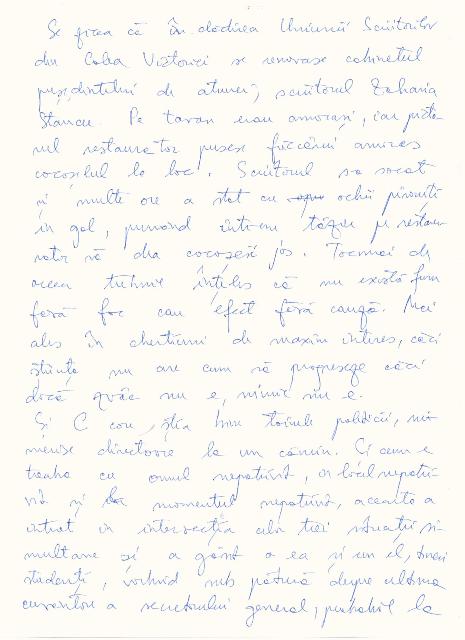 Se zicea că în clădirea Uniunii Scriitorilor
din Calea Victoriei se renovase cabinetul
președintelui de atunci, scriitorul Zaharia
Stancu. Pe tavan erau amorași, iar picto-
rul restaurator pusese fiecărui amoraș
cocoșelul la loc. Scriitorul s-a șocat
și multe ore a stat cu ochii pironiți
în gol, punând într-un târziu pe restau-
rator să dea cocoșeii jos. Tocmai de
aceea trebuie înțeles că nu există fum
fără foc sau efect fără cauză. Mai
ales în chestiuni de maxim interes, căci
știința nu are cum să progreseze căci
dacă nu e, nimic nu e.
Și C care știa bine toiurile politicii, nu
directoare la un cămin. Și cum e
treaba cu omul nepotrivit, in locul nepotri-
vit și momentul nepotrivit, aceasta a
intrat în intersecția celor trei situații si-
multane și a găsit o ea și un el, tineri
studenți, vorbind sub pătură despre ultima
cuvântare a secretarului general, probabil la